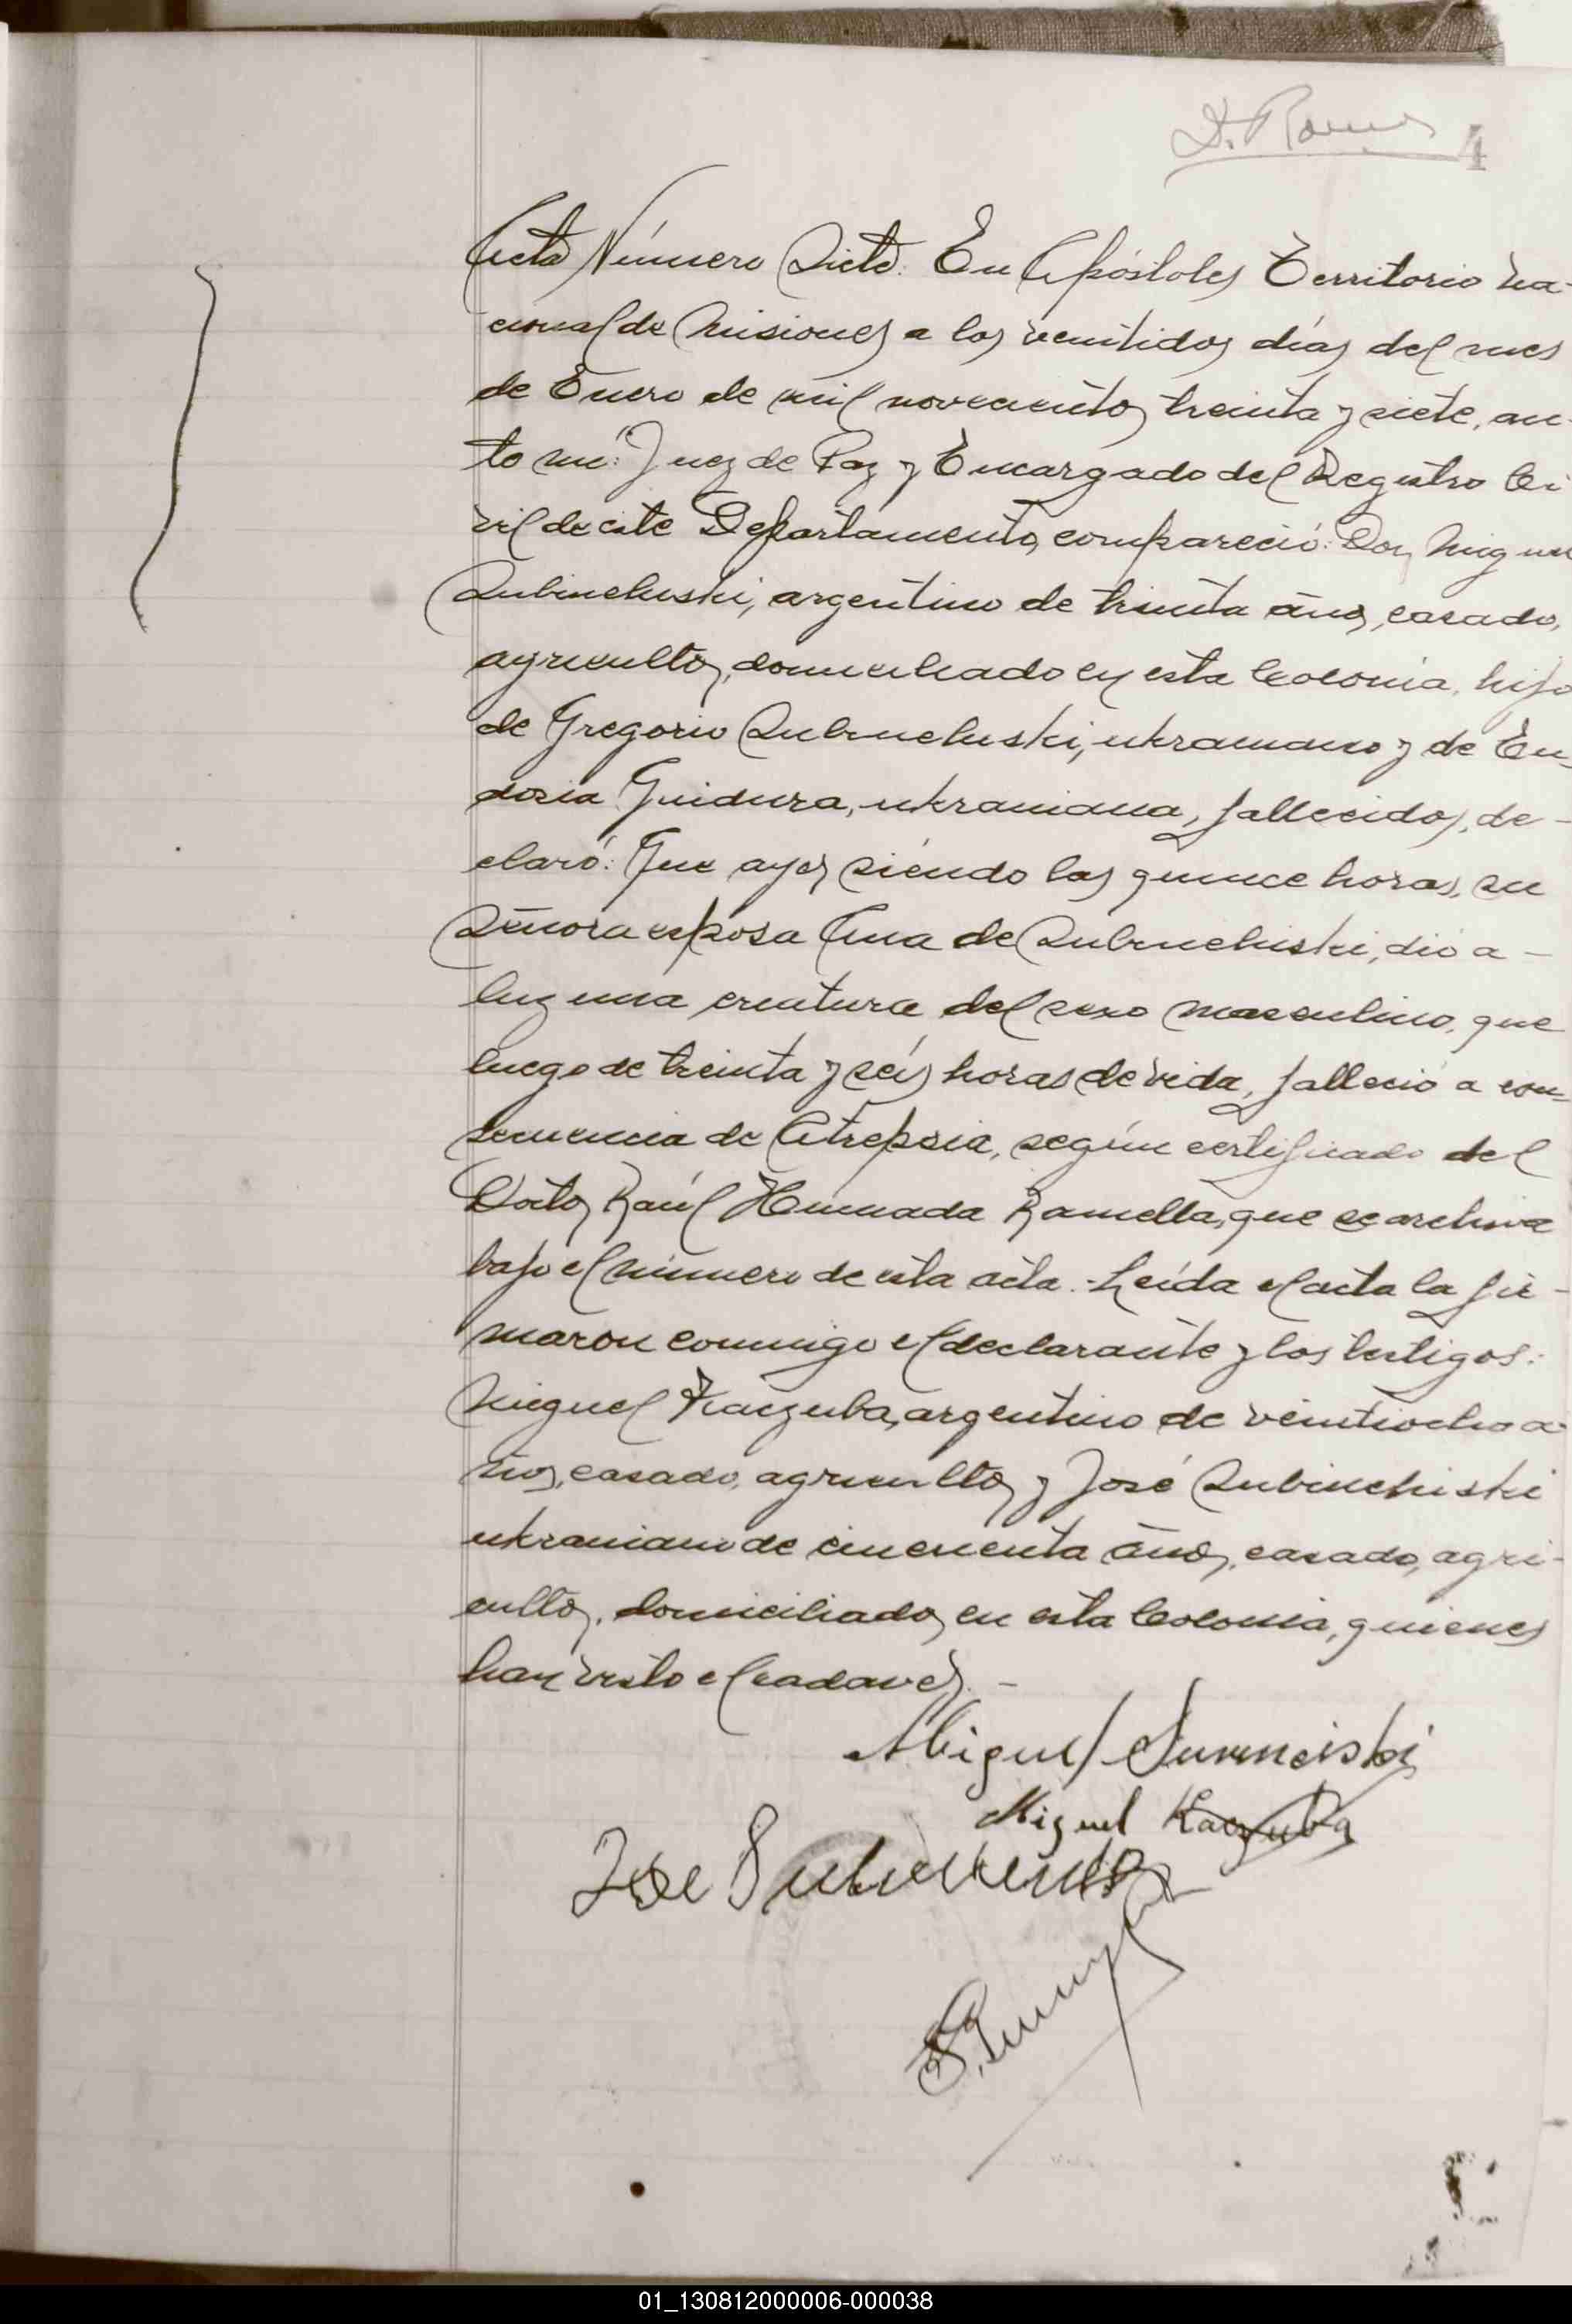 4
Acta Número Siete: En Apóstoles Territorio Na-
cional de Misiones a los veintidos días del mes
de Enero de mil novecientos treinta y siete, an-
te mí: Juez de Paz y Encargado del Registro Ci
vil de este Departamento, compareció: Don Miguel
Subinchuski, argentino de treinta años, casado,
agricultor, domiciliado en esta Colonia, hijo
de Gregorio Subinchuski, ukraniano y de Eu-
dosia Guidura, ukraniana, fallecidos, de-
claró: Que ayer siendo las quince horas, su
Señora esposa Ana de Subinchiski, dió a-
luz una creatura del sexo masculino, que
luego de treinta y seis horas de vida, falleció a con-
secuencia de Atrepsia, según certificado del
Doctor Raúl Ramella, que se archiva
bajo el número de esta acta.-Leída el acta la fir-
maron conmigo el declarante y los testigos:
Miguel Kaczuba, argentino de veintiocho a-
ños, casado, agricultor y José Subinchiski
ukraniano de cincuenta años, casado, agri-
cultor, domiciliados en esta Colonia, quienes
han visto el cadaver.-
Miguel
Miguel Kaczuba
Jose
01_130812000006-000038